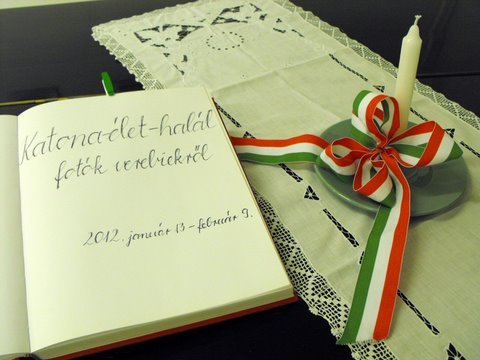 Katona-élet-halál
fotók verebickről
2012. január 13-február 9.